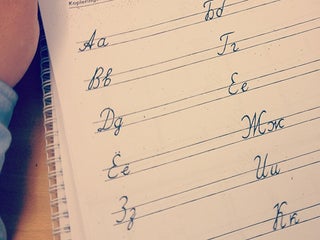 Аа Бб
Вв Гг
Дд Ее
Ёё Жж
Зз Ии
Кк